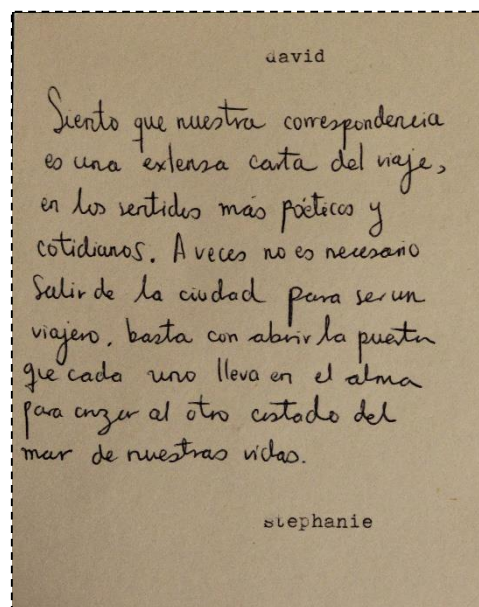 david
Siento que nuestra correspondencia
es una extensa carta del viaje,
en los sentidos más poéticos y
cotidianos. A veces no es necesario
salir de la ciudad para ser un
viajero, basta con abrir la puerta
que cada uno lleva en el alma
para cruzar al otro costado del
mar de nuestras vidas.
stephanie